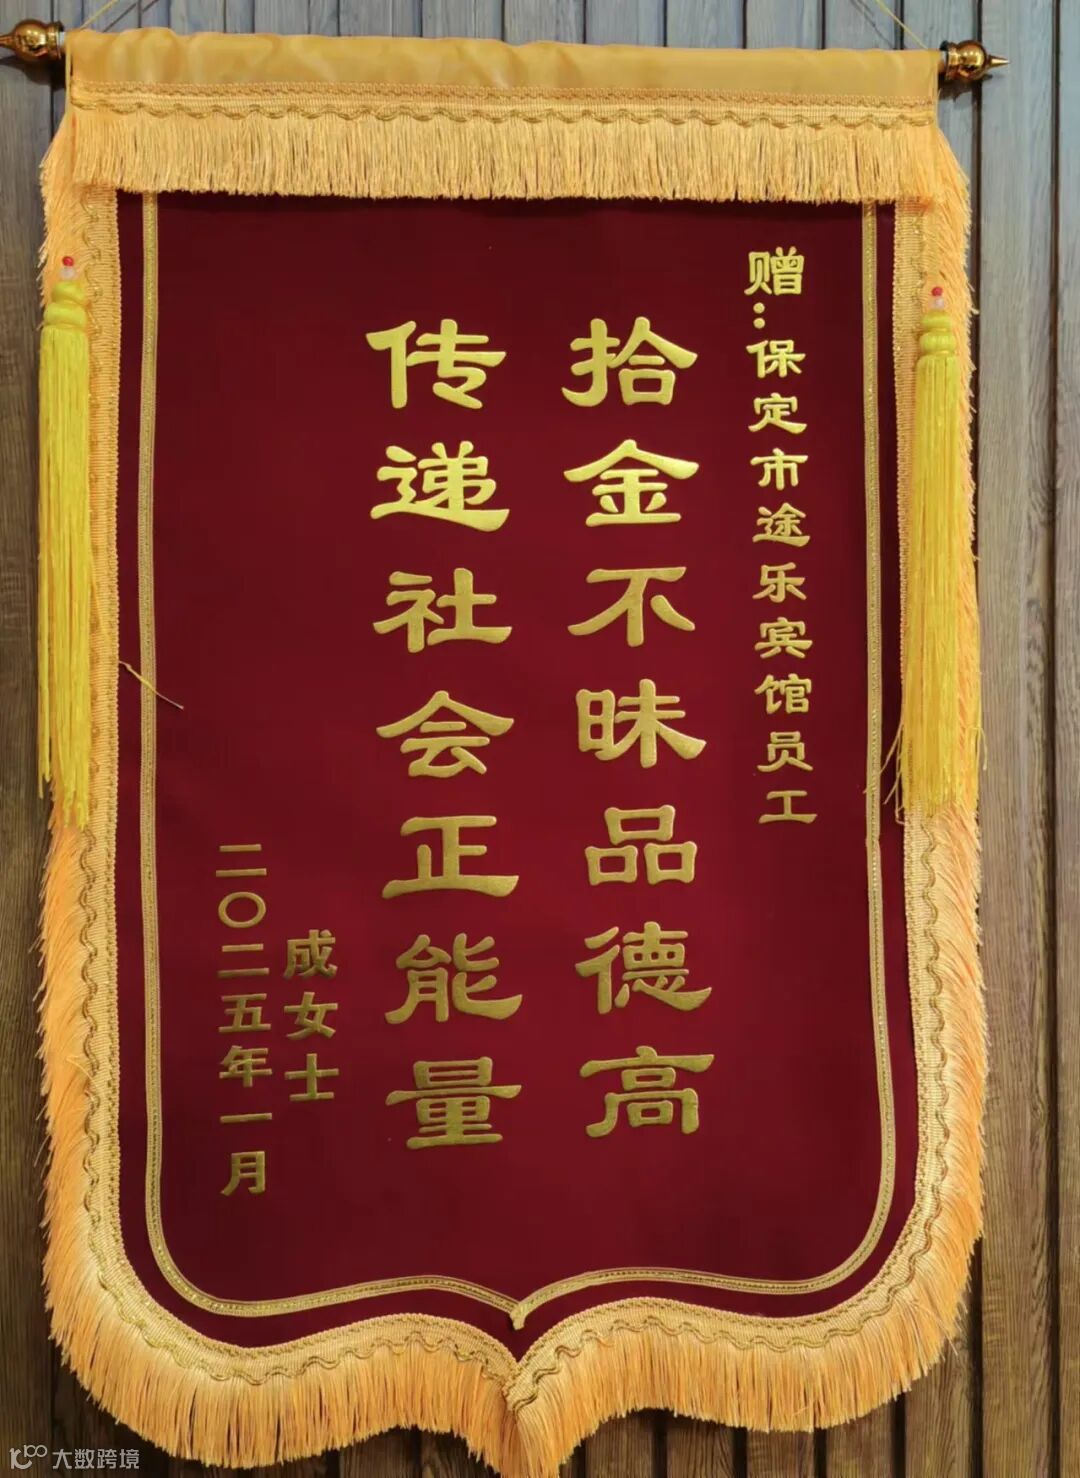 赠：保定市途乐宾馆员工
拾金不昧品德高
传递社会正能量
成女士
二〇二五年一月
大数跨境